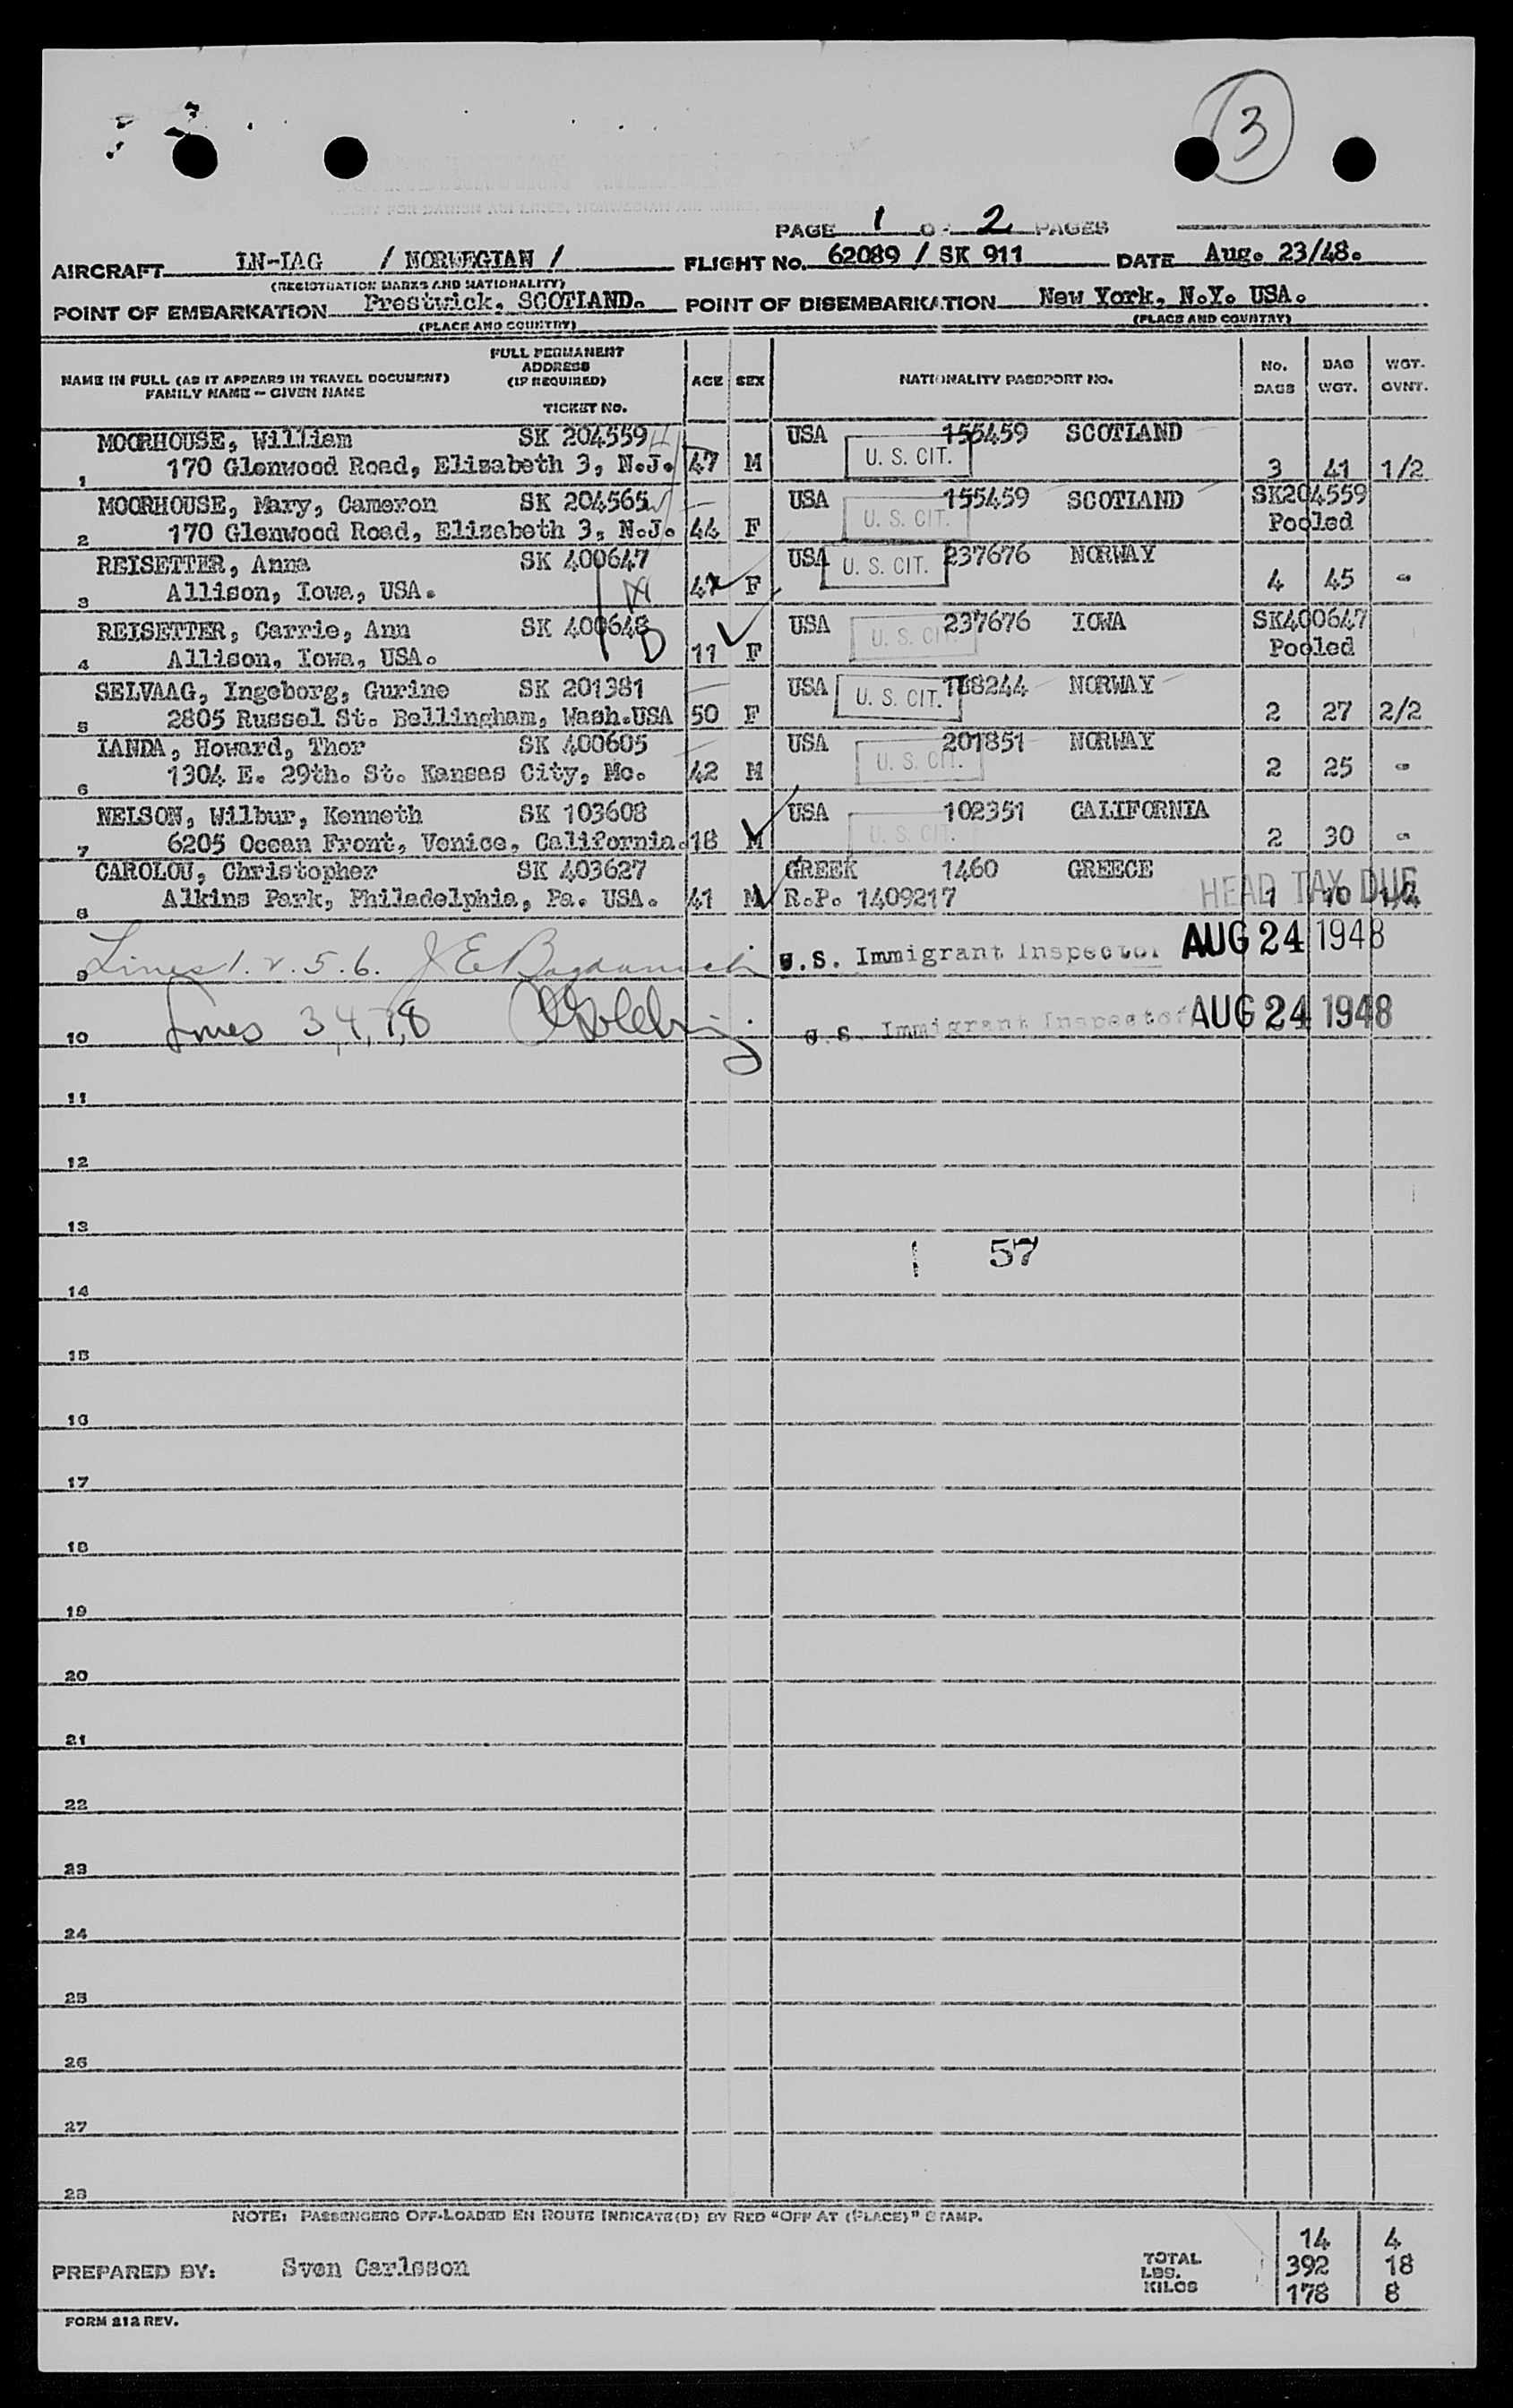 3
PAGE 1 OF 2 PAGES
AIRCRAFT LN-IAG / NORWEGIAN / FLIGHT No. 62089 / SK 911 DATE Aug. 23/48.
(REGISTRATION MARKS AND NATIONALITY)
POINT OF EMBARKATION Prestwick, SCOTLAND. POINT OF DISEMBARKATION New York, N.Y. USA.
(PLACE AND COUNTRY) (PLACE AND COUNTRY)
NAME IN FULL (AS IT APPEARS IN TRAVEL DOCUMENT) FAMILY NAME – GIVEN NAME FULL PERMANENT ADDRESS (IF REQUIRED) TICKET NO. AGE SEX NATIONALITY PASSPORT NO. NO. BAGS BAG WGT. WGT. OVNT.
MOORHOUSE, William SK 204559 USA 155459 SCOTLAND
1 170 Glenwood Road, Elizabeth 3, N.J. 47 M U. S. CIT. 3 41 1/2
MOORHOUSE, Mary, Cameron SK 204565 USA 155459 SCOTLAND SK204559
2 170 Glenwood Road, Elizabeth 3, N.J. 44 F U. S. CIT. Pooled
REISETTER, Anna SK 400647 USA U. S. CIT. 237676 NORWAY
3 Allison, Iowa, USA. 47 F 4 45 -
REISETTER, Carrie, Ann SK 400648 USA 237676 IOWA SK400647
4 Allison, Iowa, USA. 11 F U. S. CIT. Pooled
SELVAAG, Ingeborg, Gurine SK 201381 USA U. S. CIT. 188244 NORWAY
5 2805 Russel St. Bellingham, Wash.USA 50 F 2 27 2/2
LANDA, Howard, Thor SK 400605 USA 201851 NORWAY
6 1304 E. 29th. St. Kansas City, Mo. 42 M U. S. CIT. 2 25 -
NELSON, Wilbur, Kenneth SK 103608 USA 102351 CALIFORNIA
7 6205 Ocean Front, Venice, California. 18 M U. S. CIT. 2 30 -
CAROLOU, Christopher SK 403627 GREEK 1460 GREECE
8 Alkins Park, Philadelphia, Pa. USA. 41 M R.P. 1409217 HEAD TAX DUE 1 10 1/4
9 Lines 1. 2. 5. 6. U.S. Immigrant Inspector AUG 24 1948
10 Lines 3,4,7,8 U.S. Immigrant Inspector AUG 24 1948
11
12
13
57
14
15
16
17
18
19
20
21
22
23
24
25
26
27
28
NOTE: PASSENGERS OFF-LOADED EN ROUTE INDICATE(D) BY RED "OFF AT (PLACE)" STAMP.
14 4
PREPARED BY: Sven Carlsson TOTAL LBS. 392 18
KILOS 178 8
FORM 212 REV.